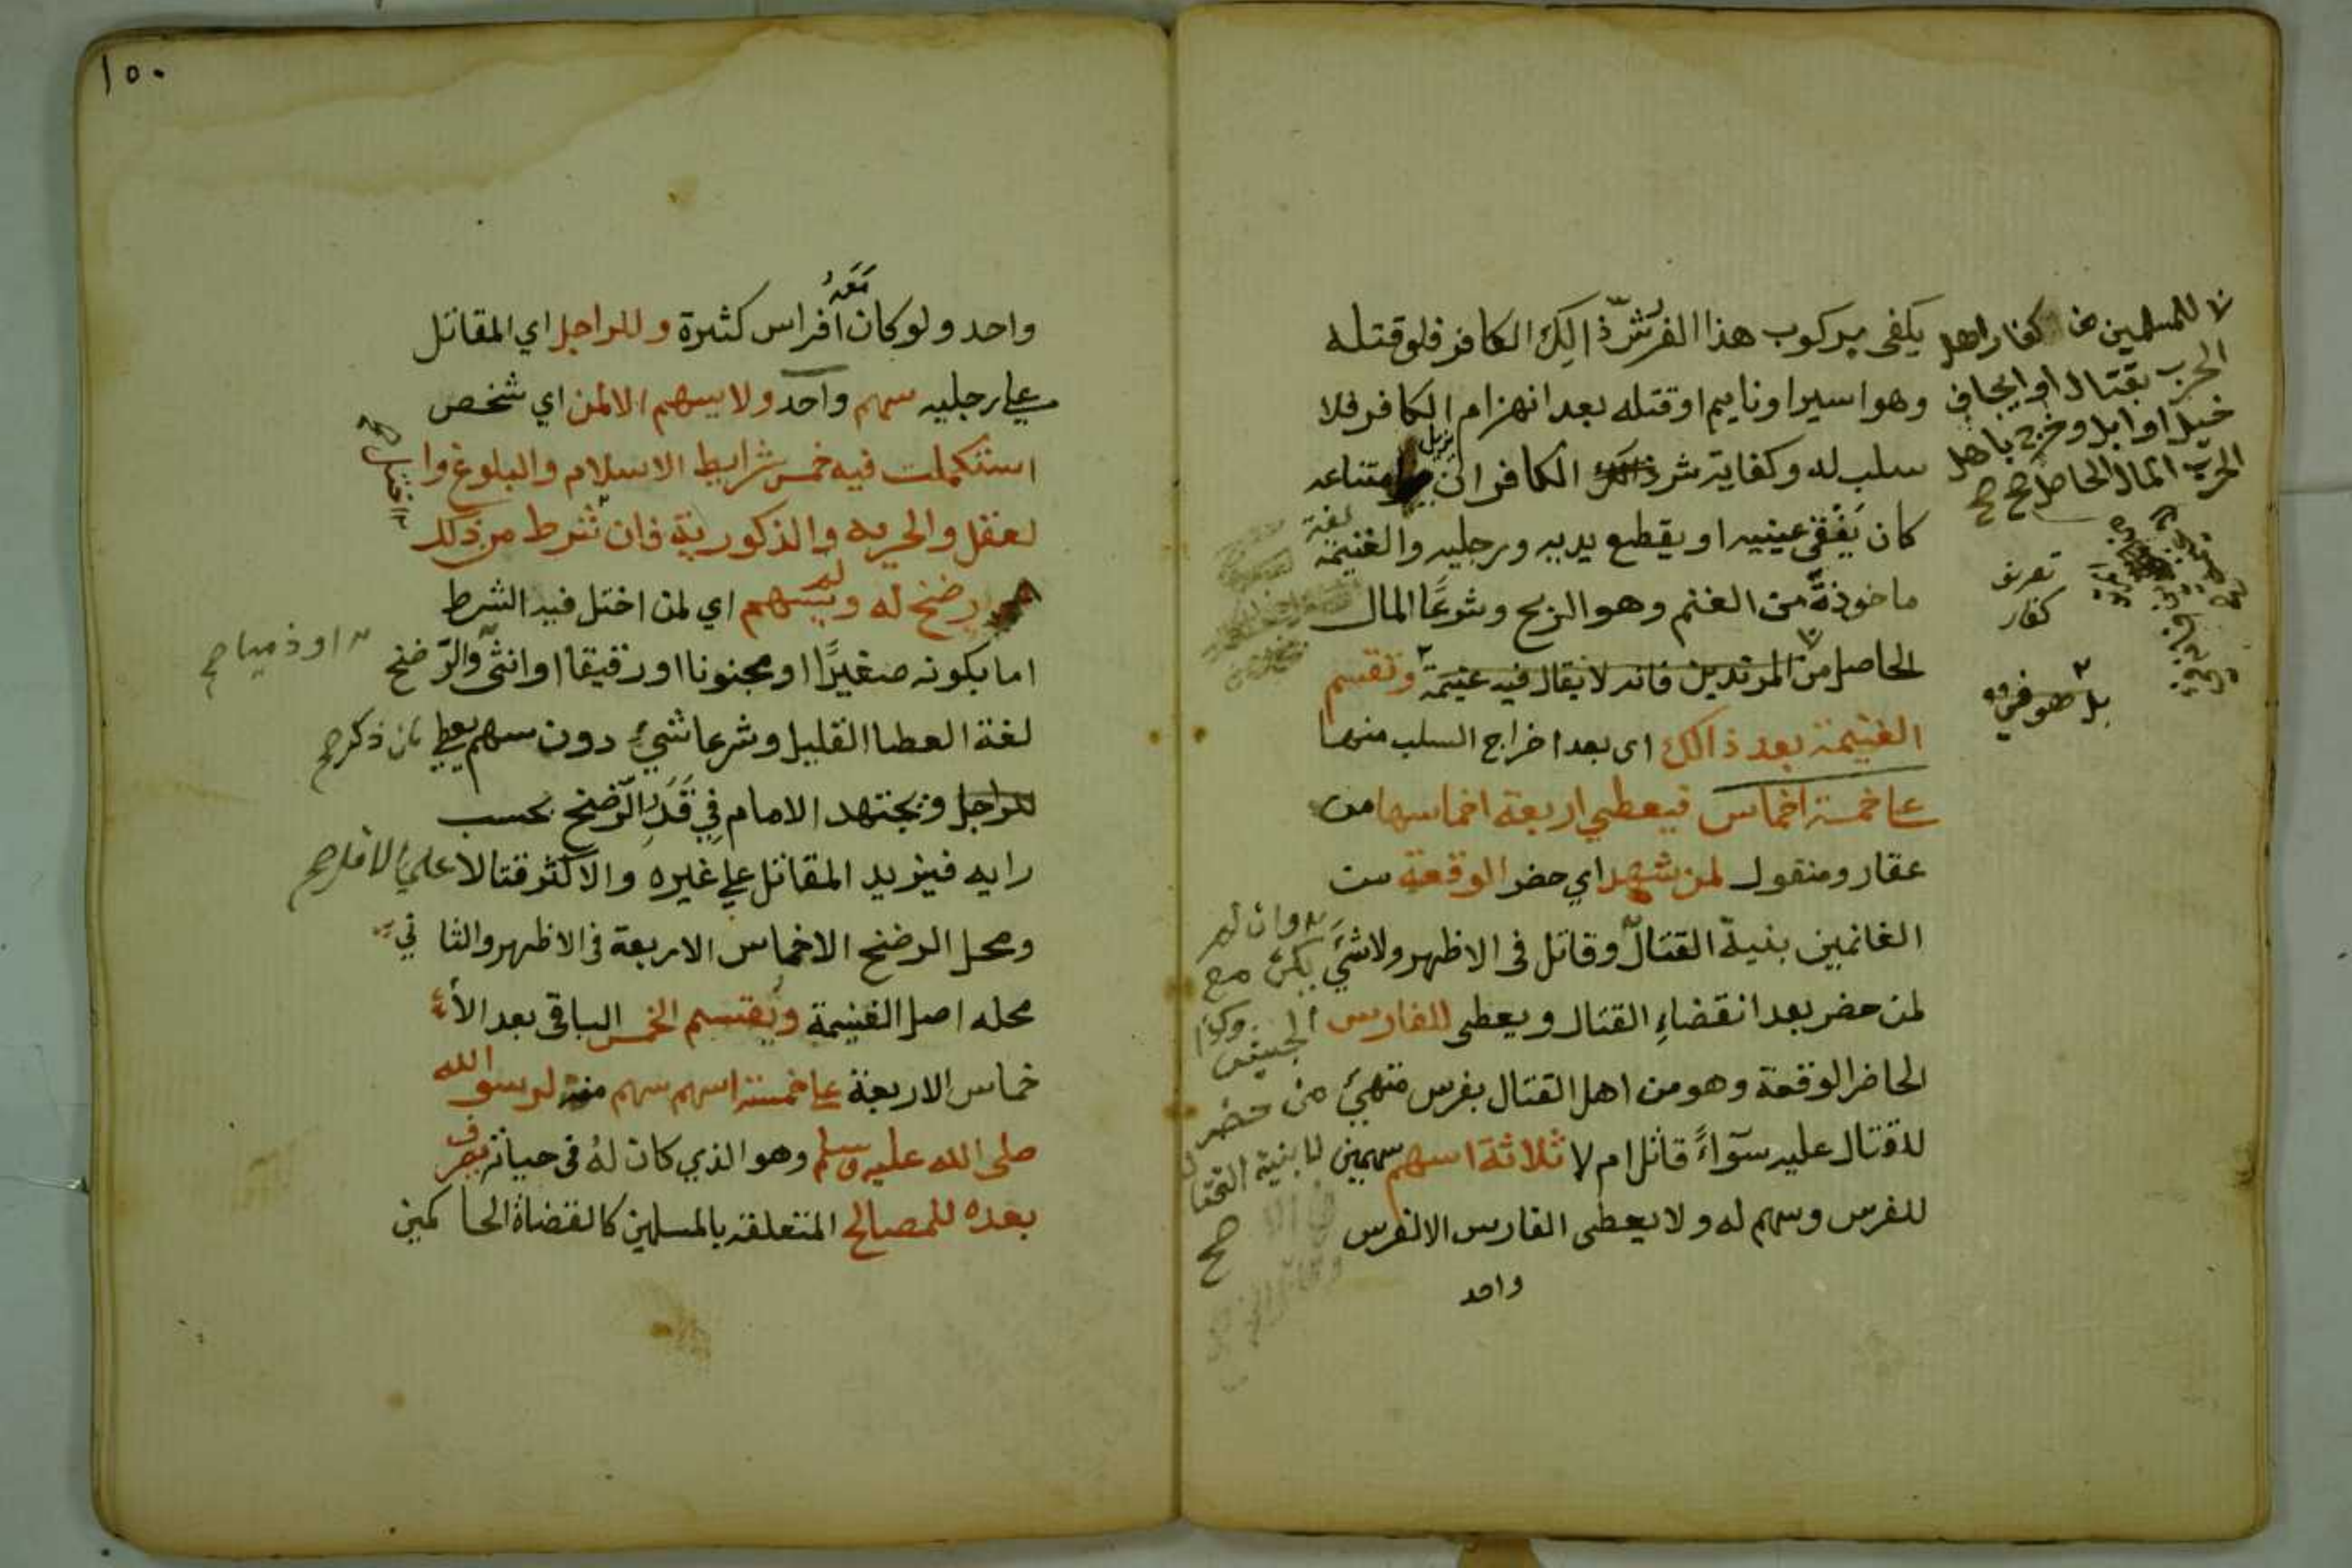 يكفى بركوب هذا الفرس شر ذالك الكافر فلو قتله
وهو اسير او نايم او قتله بعد انهزام الكافر فلا
سلب له وكفاية شر ذالك الكافر ان يزيل امتناعه
كان يفقى عينيه او يقطع يديه ورجليه والغنيمة لغة
ماخوذة من الغنم وهو الربح وشرعًا المال
الحاصل من المرتدين فانه لا يقال فيه غنيمة وتقسم
الغنيمة بعد ذالك اى بعد اخراج السلب منها
على خمسة اخماس فيعطى اربعة اخماسها من
عقار ومنقول لمن شهد اي حضر الوقعة من
الغانمين بنية القتال وقاتل فى الاظهر ولا شيء
لمن حضر بعد انقضاءِ القتال ويعطى للفارس
الحاضر الوقعة وهو من اهل القتال بفرس متهيئ
للقتال عليه سوآءً قاتل ام لا ثلاثة اسهم سهمين
للفرس وسهم له ولا يعطى الفارس الا لفرس
واحد
للمسلمين من كفار اهل
الحرب بقتال او ايجاف
خيل او ابل وخرج باهل
الحرب المال الحاصل صح صح
تعريف
كفار
بل هو فيء
وان لم
يكن مع
الجيش وكذا
من حضر
لا بنية القتال
صح
١٥٠
واحد ولو كان معه افراس كثيرة وللراجل اي المقاتل
على رجليه سهم واحد ولا يسهم الا لمن اي شخص
استكملت فيه خمس شرايط الاسلام والبلوغ وا
لعقل والحريه والذكورية فان شرط من ذلك
اختل صح
رضخ له ولم يسهم اي لمن اختل فيه الشرط
اما بكونه صغيرًا او مجنونا او رقيقا او انثى والرّضخ
او ذميا صح
لغة العطا القليل وشرعا شيءٌ دون سهم يعطى
للراجل ويجتهد الامام فِي قَدرِ الرّضخ بحسب
رايه فيزيد المقاتل على غيره والاكثر قتالا على الاقل صح
ومحل الرضخ الاخماس الاربعة فى الاظهر والثا ني
محله اصل الغنيمة ويقسم الخمس الباقى بعد الأ
خماس الاربعة على خمسة اسهم سهم منه لرسو الله
صلى الله عليه وسلم وهو الذي كان لهُ فى حياته يصرف
بعده للمصالح المتعلقة بالمسلمين كالقضاة الحا كمين